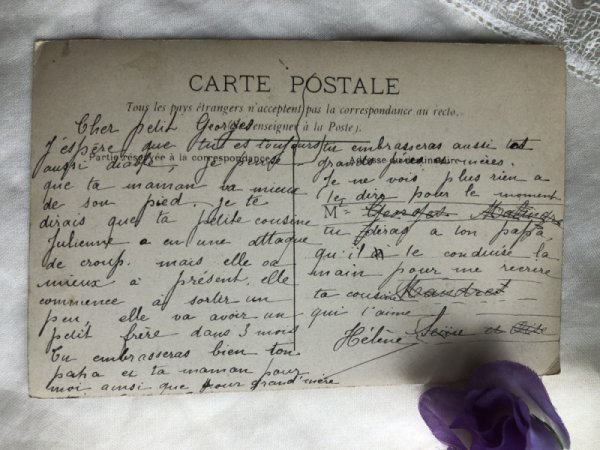 CARTE POSTALE
Tous les pays étrangers n'acceptent pas la correspondance au recto.
(Se renseigner à la Poste).
Partie réservée à la correspondance
Adresse du destinataire
Cher petit Georges
J'espère que tu es toujours
aussi diable, je pense
que ta maman va mieux
de son pied. Je te
dirais que ta petite cousine
Julienne a eu une attaque
de croup. mais elle va
mieux à présent. elle
commence à sortir un
peu, elle va avoir un
petit frère dans 3 mois
Tu embrasseras bien ton
papa et ta maman pour
moi ainsi que pour grand'mère
tu embrasseras aussi tes
grands pères et mères.
Je ne vois plus rien a
te dire pour le moment
M Georges
tu diras a ton papa,
qu'il te conduise la
main pour me récrire
ta cousine
qui t'aime
Hélène
Seine et Oise